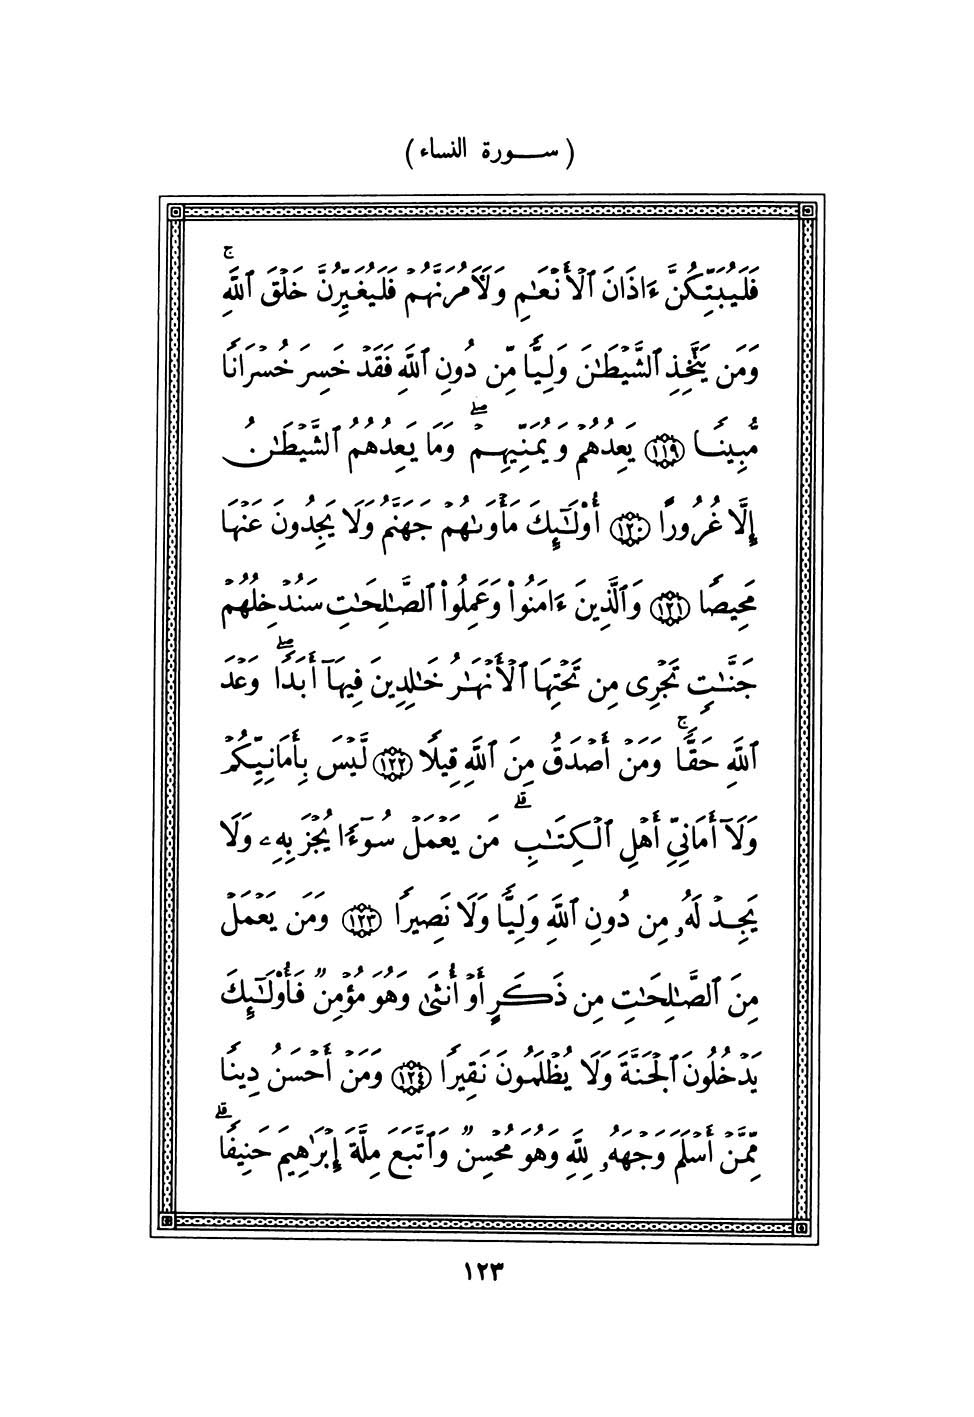 ( ســـورة النساء )
فَلَيُبَتِّكُنَّ ءَاذَانَ ٱلْأَنْعَٰمِ وَلَأَمُرَنَّهُمْ فَلَيُغَيِّرُنَّ خَلْقَ ٱللَّهِ ۚ
وَمَن يَتَّخِذِ ٱلشَّيْطَٰنَ وَلِيًّا مِّن دُونِ ٱللَّهِ فَقَدْ خَسِرَ خُسْرَانًا
مُّبِينًا ١١٩ يَعِدُهُمْ وَيُمَنِّيهِمْ ۖ وَمَا يَعِدُهُمُ ٱلشَّيْطَٰنُ
إِلَّا غُرُورًا ١٢٠ أُو۟لَٰٓئِكَ مَأْوَىٰهُمْ جَهَنَّمُ وَلَا يَجِدُونَ عَنْهَا
مَحِيصًا ١٢١ وَٱلَّذِينَ ءَامَنُوا۟ وَعَمِلُوا۟ ٱلصَّٰلِحَٰتِ سَنُدْخِلُهُمْ
جَنَّٰتٍ تَجْرِى مِن تَحْتِهَا ٱلْأَنْهَٰرُ خَٰلِدِينَ فِيهَآ أَبَدًا ۖ وَعْدَ
ٱللَّهِ حَقًّا ۚ وَمَنْ أَصْدَقُ مِنَ ٱللَّهِ قِيلًا ١٢٢ لَّيْسَ بِأَمَانِيِّكُمْ
وَلَآ أَمَانِىِّ أَهْلِ ٱلْكِتَٰبِ ۗ مَن يَعْمَلْ سُوٓءًا يُجْزَ بِهِۦ وَلَا
يَجِدْ لَهُۥ مِن دُونِ ٱللَّهِ وَلِيًّا وَلَا نَصِيرًا ١٢٣ وَمَن يَعْمَلْ
مِنَ ٱلصَّٰلِحَٰتِ مِن ذَكَرٍ أَوْ أُنثَىٰ وَهُوَ مُؤْمِنٌ فَأُو۟لَٰٓئِكَ
يَدْخُلُونَ ٱلْجَنَّةَ وَلَا يُظْلَمُونَ نَقِيرًا ١٢٤ وَمَنْ أَحْسَنُ دِينًا
مِّمَّنْ أَسْلَمَ وَجْهَهُۥ لِلَّهِ وَهُوَ مُحْسِنٌ وَٱتَّبَعَ مِلَّةَ إِبْرَٰهِيمَ حَنِيفًا ۗ
١٢٣